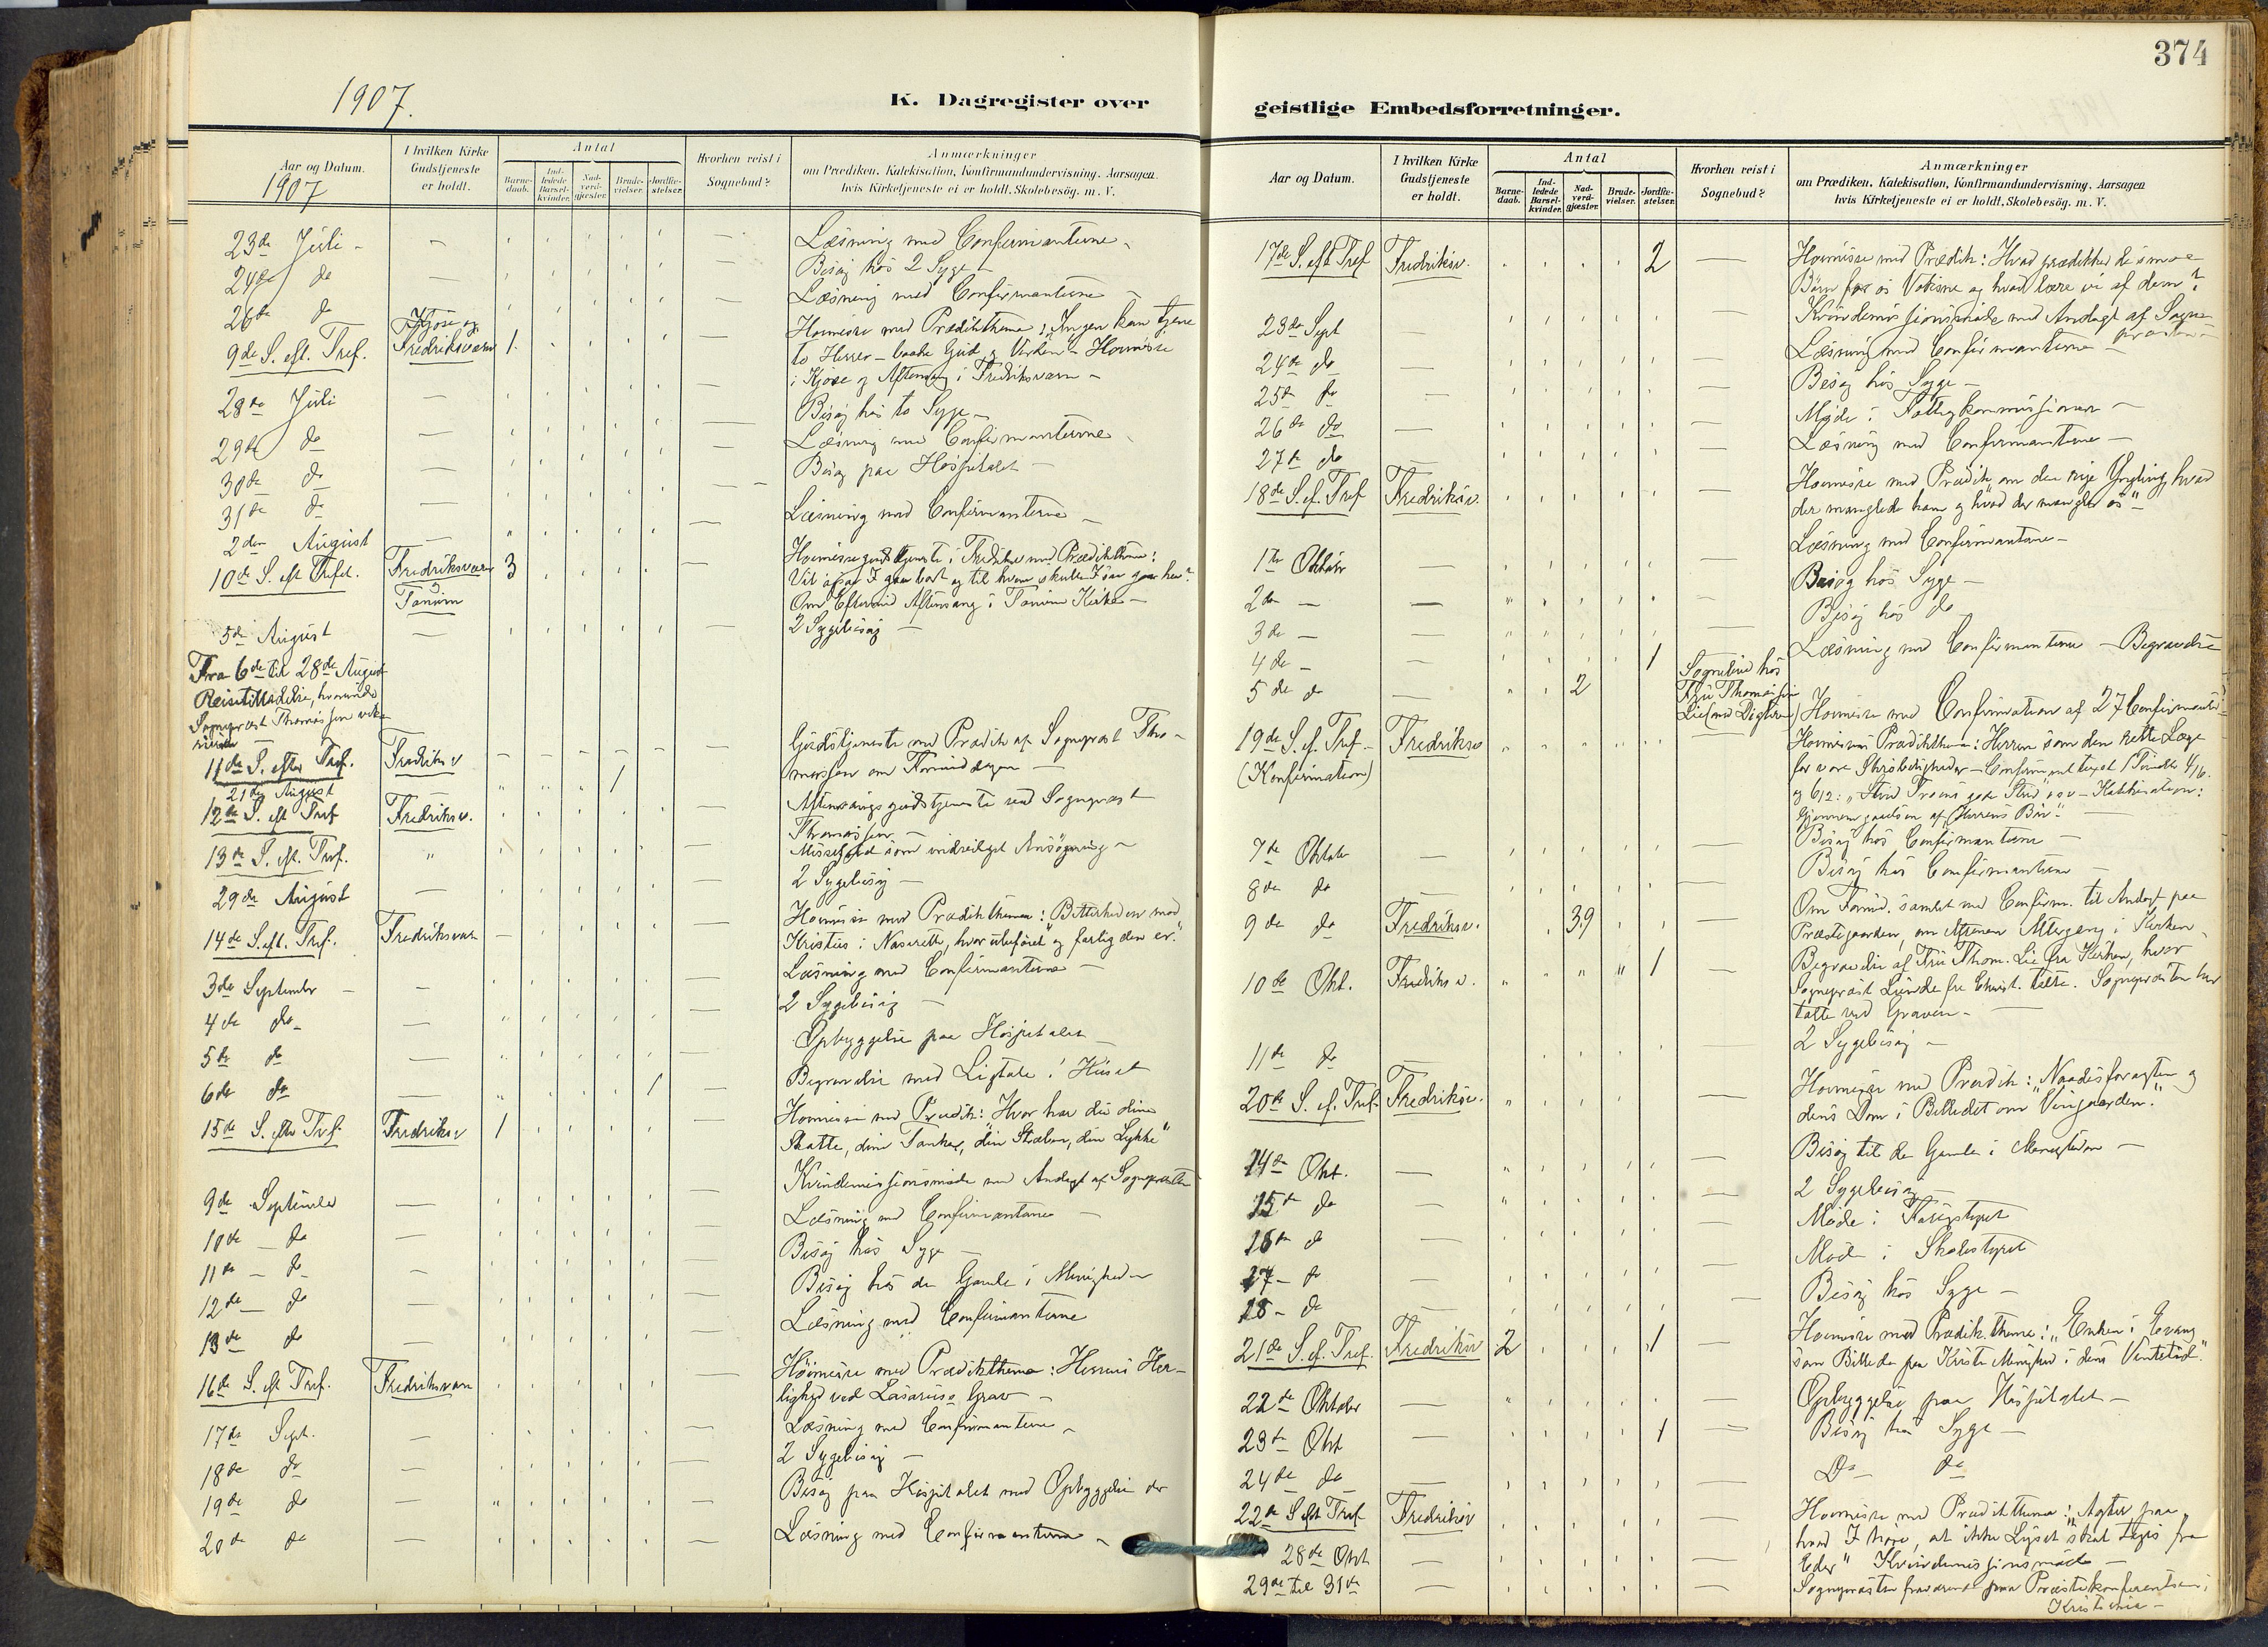 1907.
K. Dagregister over
Aar og Datum.
1907
I hvilken Kirke Gudstjeneste er holdt.
Antal
Barnedaab.
Indledede Barselkvinder.
Nadverdgjæster.
Brudevielser.
Jordfæstelser.
Hvorhen reist i Sognebud?
Anmærkninger
om Prædiken, Katekisation, Konfirmandundervisning, Aarsagen
hvis Kirketjeneste ei er holdt, Skolebesög. m. V.
23de Juli - Læsning med Confirmanterne
24de do Besøg hos 2 Syge
26de do Læsning med Confirmanterne
9de S. eft. Tref. Kjose og Fredriksværn 1. Høimesse med Prædikthema: Ingen kan tjene
to Herrer - baade Gud og Verden - Høimesse
i Kjose og Aftensang i Fredriksværn -
28de Juli Besøg hos to Syge
29de do Læsning med Confirmanterne
30de do Besøg paa Hospitalet
31de do
2den August Læsning med Confirmanterne
10de S. eft Trefet. Fredriksværn 3 Høimessegudstjeneste i Fredriksv med Prædikthema:
Vil ogsaa I gaa bort og til hvem skulle I saa gaa hen?
Tanum Om Eftermid Aftensang i Tanum Kirke -
5de August 2 Sygebesøg
Fra 6de til 28de August
Reisetilladelse, hvorunder
Sogneprest Thomassen
11de S. efter Tref. Fredriksv Gudstjeneste med Prædik af Sogneprest Tho-
massen om Formiddagen
21de August 1
12te S. eft Tref Fredriksv. Aftensangsgudstjeneste ved Sogneprest
Thomassen
13de S. eft. Tref. " Messefald som indvilget Ansøgning
29de August 2 Sygebesøg
14de S. eft. Tref. Fredriksværn Høimesse med Prædikthema: Bitterheden mod
Kristus i Nasareth, hvor ubeføiet og farlig den er."
3die September Læsning med Confirmanterne
4de do 2 Sygebesøg
5te do Opbyggelse paa Hospitalet
6de do 1 Begravelse med Ligtale i Huset
15de S. efter Tref. Fredriksv 1 Høimesse med Prædik: Hvor har du dine
Skatte, dine Tanker, din Stræben, din Lykke"
9de September Kvindemissionsmøde med Andagt af Sognepresten
10de do Læsning med Confirmanterne
11te do Besøg hos Syge
12te do Besøg hos de Gamle i Menigheden
13de do Læsning med Confirmanterne
16de S. eft Tref. Fredriksværn Høimesse med Prædikthema: Herrens Her-
lighed ved Lasaruss Grav
17de Sept. Læsning med Confirmanterne
18de do 2 Sygebesøg
19de do Besøg paa Hospitalet med Opbyggelse der
20de do Læsning med Confirmanterne
374
geistlige Embedsforretninger.
Aar og Datum.
I hvilken Kirke Gudstjeneste er holdt.
Antal
Barnedaab.
Indledede Barselkvinder.
Nadverdgjæster.
Brudevielser.
Jordfæstelser.
Hvorhen reist i Sognebud?
Anmærkninger
om Prædiken, Katekisation, Konfirmandundervisning, Aarsagen
hvis Kirketjeneste ei er holdt, Skolebesög. m. V.
17de S. eft Tref Fredriksv. 2 Høimesse med Prædik: Hvad prædiker de smaae
Børn for os Voksne og hvad lære vi af dem?
23de Sept Kvindemissionsmøde med Andagt af Sogne-
præsten
24de do Læsning med Confirmanterne
25de do Besøg hos Syge
26de do Møde i Fattigkommissionen
27de do Læsning med Confirmanterne
18de S. ef. Tref Fredriksv. Høimesse med Prædik om den rige Yngling, hvad
der manglede ham og hvad der mangler os"
1te Oktober Læsning med Confirmanterne
2den - Besøg hos Syge
3de - Besøg hos do
4de - 1 Læsning med Confirmanterne - Begravelse
5te do 2 Sognebud hos
Fru Thomas
Lie
19de S. ef. Tref - Fredriksv Høimesse med Confirmation af 27 Confirmanter
(Konfirmation) Høimessens Prædikthema: Herren som den rette Læge
for vore Skrøbeligheder - Confirm. ved text 1 Timoth 4/16.
og 6/12: "Strid Troens gode Strid osv - Katekisation:
Gjennemgaaelsen af Herrens Bøn".
7de Oktober Besøg hos Confirmanterne
8de do Besøg hos Confirmanterne
9de do Fredriksv. 39 Om Formid. samlet med Confirm. til Andagt paa
Præstegaarden, om Aftenen Altergang i Kirken
10de Okt. Fredriksv. 1 Begravelse af Fru Thom. Lie fra Kirken, hvor
Sogneprest Lunde fra Christ. talte. Sognepresten her
talte ved Graven -
11te do 2 Sygebesøg
20de S. ef. Tref. Fredriksv. Høimesse med Prædik: "Naadesforagten og
dens Dom i Billedet om Vingaarden."
14de Okt. Besøg til de Gamle i Menigheden
15de do 2 Sygebesøg
16de do Møde i
17 - do Møde i Skolestyret
18 - do Besøg hos Syge
21de S. ef. Tref. Fredriksv 2 1 Høimesse med Prædik.thema: "Enken i Evang
som Billede paa Kristi Menighed i dens Ventetid".
22de Oktober Opbyggelse paa Hospitalet
23de Okt 1 Besøg hos Syge
24de do Do do
22de S eft Tref Fredriksv Høimesse med Prædikthema: "Agter paa
hvad I høre, at ikke Lyset skal tages fra
28de Okt Eder" Kvindemissionsmøde
29de til 31te Sognepresten fraværende paa Præstekonferentsen i
Kristiania -